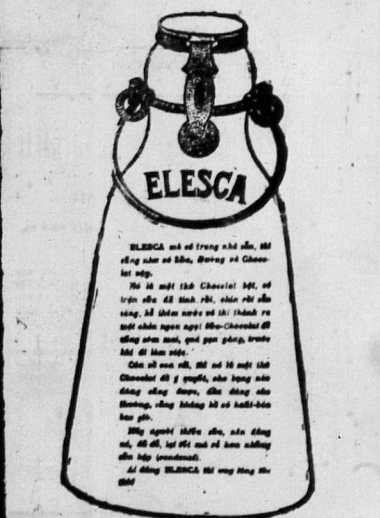 ELESCA
ELESCA mà có trong nhà sẵn, thì
cũng như có Sữa, Đường và Choco-
lat vậy.
Nó là một thứ Chocolat bột, có
trộn sữa đã tinh rồi, chín rồi sẵn
sàng, hễ thêm nước vô thì thành ra
một chén ngon ngọt Sữa-Chocolat để
uống sớm mai, quá gọn gàng, trước
khi đi làm việc.
Của về sau rồi, thì nó là một thứ
Chocolat để quyết, cho hạng nào
dùng cũng được, dẫu dùng cho
thường, cũng không hề có
bao giờ.
người thiếu sữa, nên dùng
nó, đã đỡ, lại tốt mà rẻ hơn những
sữa hộp (condensé).
Ai dùng ELESCA thì